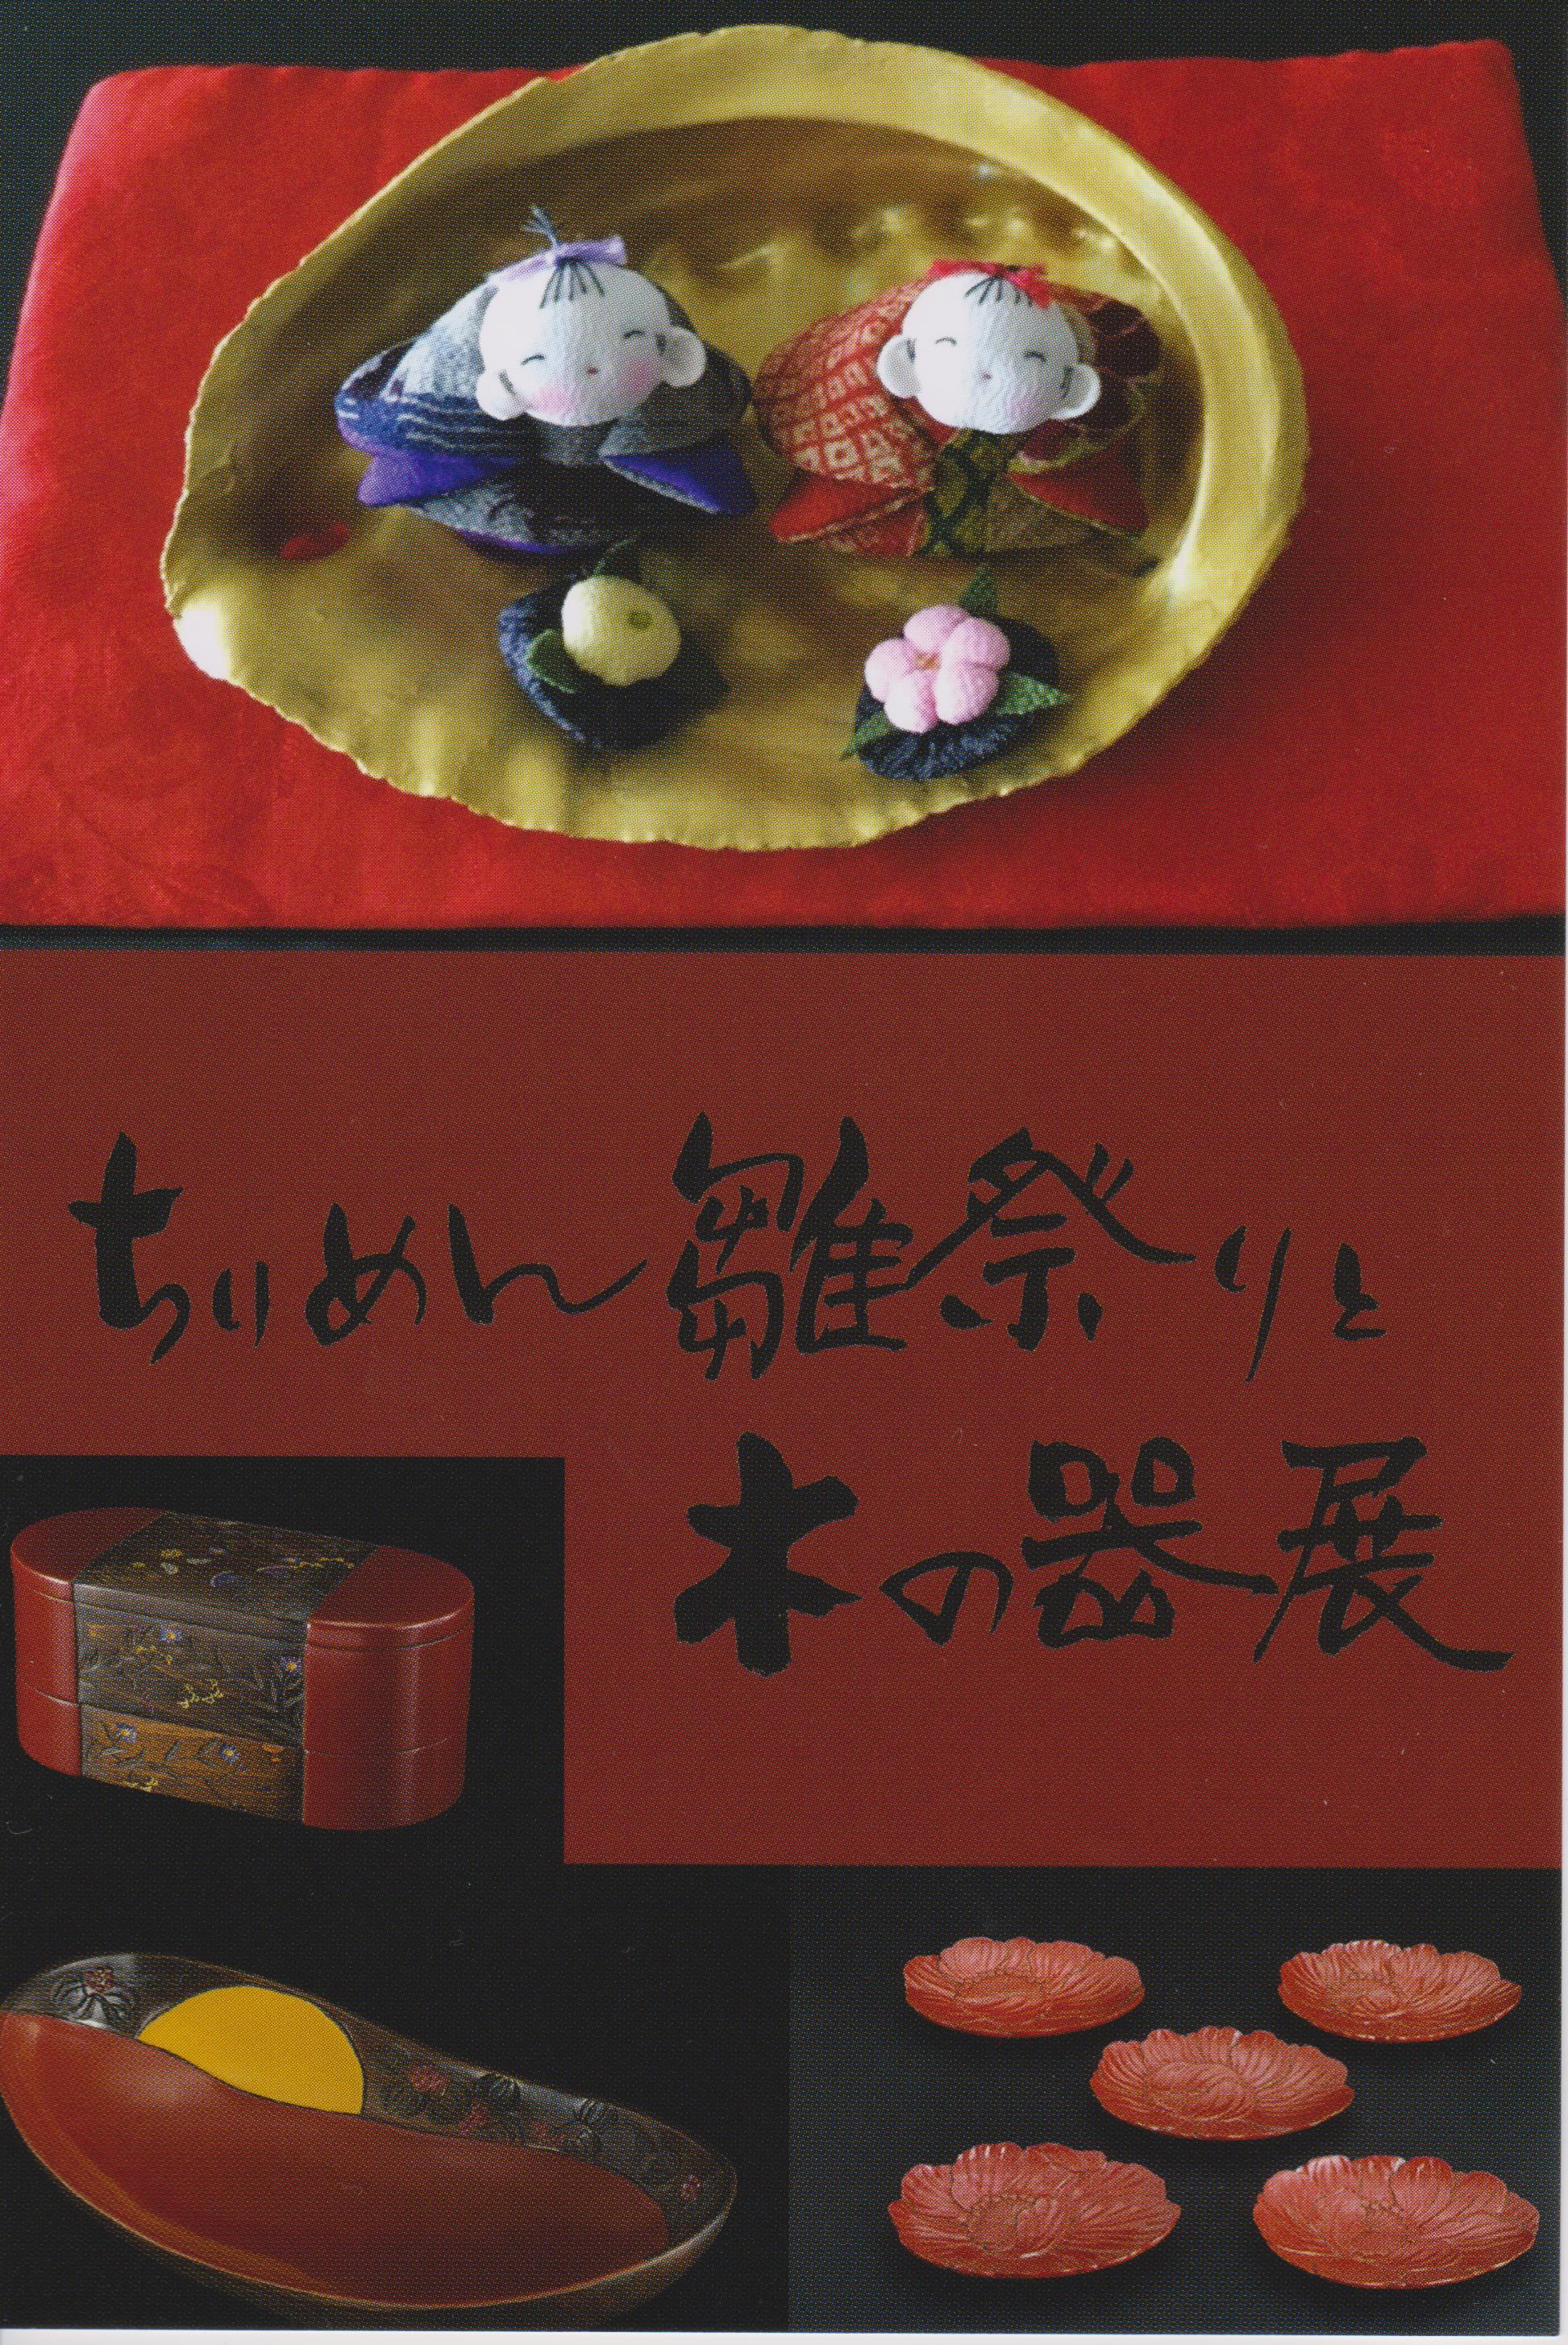 ちりめん雛祭りと
木の器展